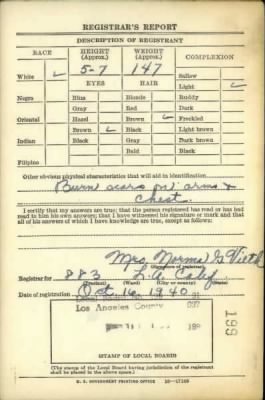 REGISTRAR'S REPORT
DESCRIPTION OF REGISTRANT
RACE HEIGHT (Approx.) WEIGHT (Approx.) COMPLEXION
5-7 147
White ✓ EYES HAIR Sallow
Light ✓
Negro Blue Blonde Ruddy
Gray Red Dark
Oriental Hazel Brown ✓ Freckled
Brown ✓ Black Light brown
Indian Black Gray Dark brown
Bald Black
Filipino
Other obvious physical characteristics that will aid in identification
Burn scars on arms &
Chest.
I certify that my answers are true; that the person registered has read or has had
read to him his own answers; that I have witnessed his signature or mark and that
all of his answers of which I have knowledge are true, except as follows:
Mrs. Norma G. Vieth
(Signature of registrar)
Registrar for 883 L.A. Calif.
(Precinct) (Ward) (City or county) (State)
Date of registration Oct. 16, 1940
Los Angeles County
199
STAMP OF LOCAL BOARD
(The stamp of the Local Board having jurisdiction of the registrant
shall be placed in the above space.)
U. S. GOVERNMENT PRINTING OFFICE 16—17105